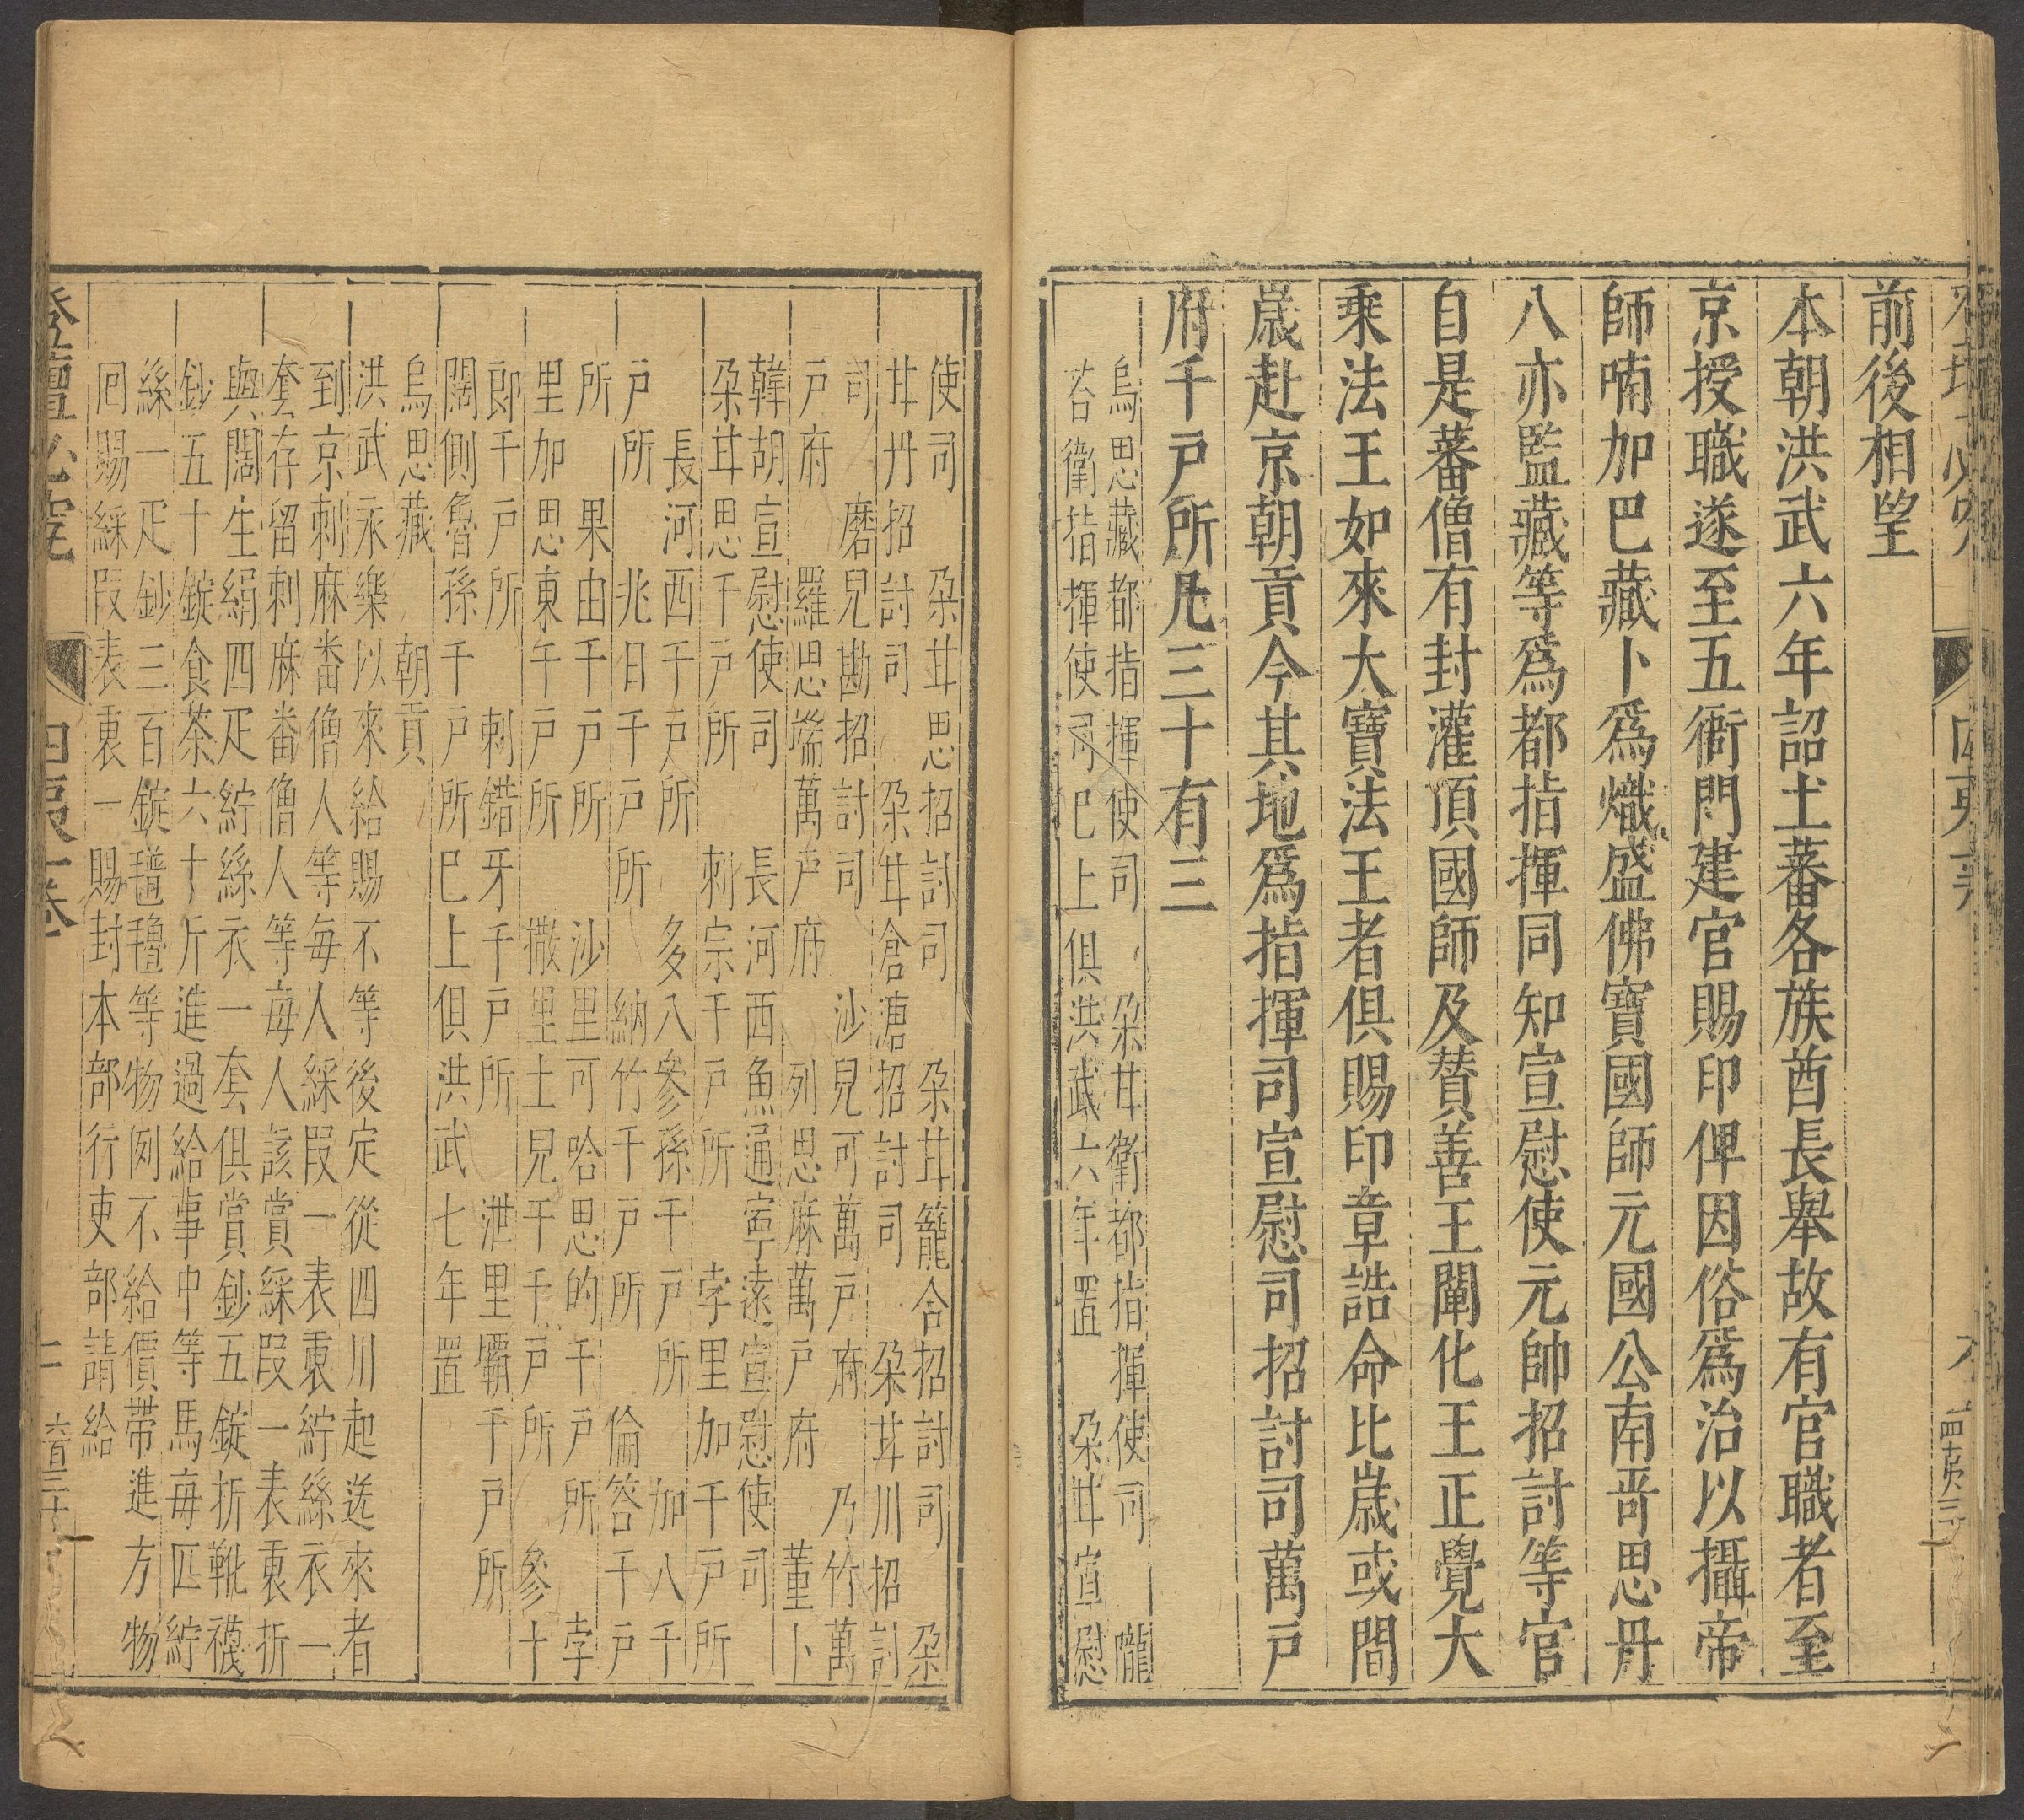 前後相望
本朝洪武六年詔土蕃各族酋長舉故有官職者至
京授職遂至五衙門建官賜印俾因俗為治以攝帝
師喃加巴藏卜為熾盛佛寶國師元國公南哥思丹
八亦監藏等為都指揮同知宣慰使元帥招討等官
自是蕃僧有封灌頂國師及賛善王闡化王正覺大
乗法王如來大寶法王者俱賜印章誥命比歲或間
歲赴京朝貢今其地為指揮司宣慰司招討司萬戶
府千戶所凡三十有三
烏思藏都指揮使司　朶甘衛都指揮使司　隴
荅衛指揮使司巳上俱洪武六年置　朶甘宣慰
使司　朶甘思招討司　朶甘籠合招討司　朶
甘丹招討司　朶甘倉溏招討司　朶甘川招討
司　磨兒勘招討司　沙兒可萬戶府　乃竹萬
戶府　羅思端萬戶府　列思麻萬戶府　董卜
韓胡宣慰使司　長河西魚通寧遠宣慰使司
朶甘思千戶所　剌宗千戶所　孛里加千戶所
長河西千戶所　多八參孫千戶所　加八千
戶所　兆日千戶所　納竹千戶所　倫答千戶
所　果由千戶所　沙里可哈思的千戶所　孛
里加思東千戶所　撒里土兒千千戶所　參十
郎千戶所　剌錯牙千戶所　泄里壩千戶所
闊側魯孫千戶所巳上俱洪武七年置
烏思藏　朝貢
洪武永樂以來給賜不等後定從四川起送來者
到京剌麻畨僧人等毎人綵叚一表裏紵絲衣一
套存留剌麻畨僧人等毎人該賞綵叚一表裏折
與闊生絹四疋紵絲衣一套俱賞鈔五錠折靴襪
鈔五十錠食茶六十斤進過給事中等馬毎匹紵
絲一疋鈔三百錠氆氌等物例不給價帶進方物
囘賜綵叚表裏一賜封本部行吏部請給
登壇必究　四夷一卷　二　六百三十